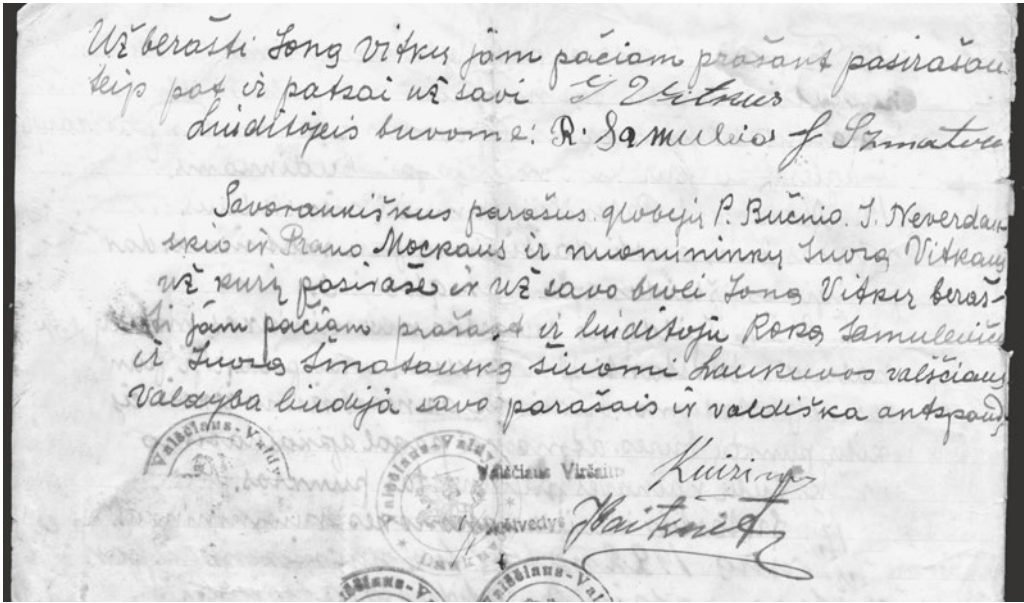 Už beraštį Joną Vitkų jam pačiam prašant pasirašau
teip pat ir patsai už savi J Vitkus
Liuditojeis buvome: R. Samulio J Szmatow
Savorankiškus parašus globėjų P. Bučnio. J. Neverdau-
skio ir Prano Mockaus ir nuomininkų Juozą Vitkaus
už kurį pasirašė ir už savo broli Joną Vitkų beraš-
tį jam pačiam prašant ir liuditoju Roką Samulevičių
ir Juozą Šmatauską šiuomi Laukuvos valsčiaus
Valdyba liudija savo parašais ir valdiška antspauda
Valsčiaus-Valdy
Valsčiaus-Valdy
Valsčiaus Viršaitis
vedys
Valsčiaus-Val
Valsčiaus-Val